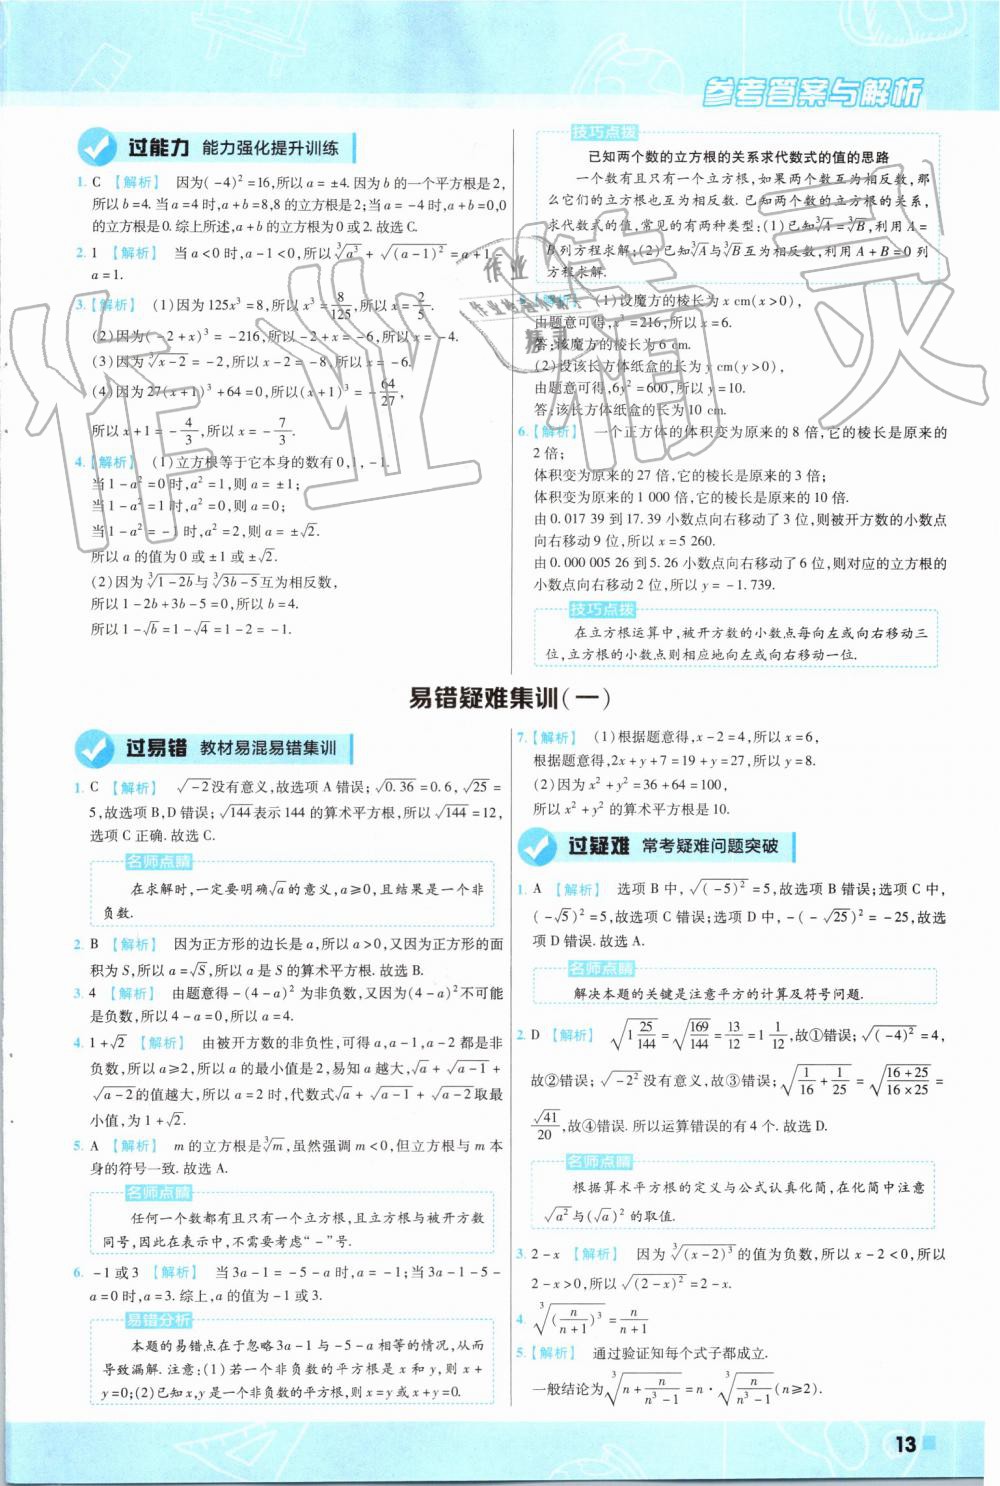 参考答案与解析
过能力 能力强化提升训练
1. C 【解析】 因为(-4)²=16,所以 a=±4.因为 b 的一个平方根是 2,
所以 b=4.当 a=4 时,a+b=8,8 的立方根是 2;当 a=-4 时,a+b=0,0
的立方根是 0.综上所述,a+b 的立方根为 0 或 2.故选 C.
2. 1 【解析】 当 a<0 时,a-1<0,所以∛a³+√(a-1)²=a+1-
a=1.
3.【解析】 (1)因为 125x³=8,所以 x³=8/125,所以 x=2/5.
(2)因为(-2+x)³=-216,所以-2+x=-6,所以 x=-4.
(3)因为∛(x-2)=-2,所以 x-2=-8,所以 x=-6.
(4)因为 27(x+1)³+64=0,所以(x+1)³=-64/27,
所以 x+1=-4/3,所以 x=-7/3.
4.【解析】 (1)立方根等于它本身的数有 0,1,-1.
当 1-a²=0 时,a²=1,则 a=±1;
当 1-a²=1 时,a²=0,则 a=0;
当 1-a²=-1 时,a²=2,则 a=±√2.
所以 a 的值为 0 或±1 或±√2.
(2)因为∛(1-2b)与∛(3b-5)互为相反数,
所以 1-2b+3b-5=0,所以 b=4.
所以 1-√b=1-√4=1-2=-1.
技巧点拨
已知两个数的立方根的关系求代数式的值的思路
一个数有且只有一个立方根,如果两个数互为相反数,那
么它们的立方根也互为相反数.已知两个数的立方根的关系,
求代数式的值,常见的有两种类型:(1)已知∛A=∛B,利用 A=
B 列方程求解;(2)已知∛A与∛B互为相反数,利用 A+B=0 列
方程求解.
【解析】 (1)设魔方的棱长为 x cm(x>0),
由题意可得,x³=216,所以 x=6.
答:该魔方的棱长为 6 cm.
(2)设该长方体纸盒的长为 y cm(y>0),
由题意可得,6y²=600,所以 y=10.
答:该长方体纸盒的长为 10 cm.
6.【解析】 一个正方体的体积变为原来的 8 倍,它的棱长是原来的
2 倍;
体积变为原来的 27 倍,它的棱长是原来的 3 倍;
体积变为原来的 1 000 倍,它的棱长是原来的 10 倍.
由 0.017 39 到 17.39 小数点向右移动了 3 位,则被开方数的小数点
向右移动 9 位,所以 x=5 260.
由 0.000 005 26 到 5.26 小数点向右移动了 6 位,则对应的立方根的
小数点向右移动 2 位,所以 y=-1.739.
技巧点拨
在立方根运算中,被开方数的小数点每向左或向右移动三
位,立方根的小数点则相应地向左或向右移动一位.
易错疑难集训(一)
过易错 教材易混易错集训
1. C 【解析】 √-2没有意义,故选项 A 错误;√0.36=0.6,√25=
5,故选项 B,D 错误;√144表示 144 的算术平方根,所以√144=12,
选项 C 正确.故选 C.
名师点睛
在求解时,一定要明确√a的意义,a≥0,且结果是一个非
负数.
2. B 【解析】 因为正方形的边长是 a,所以 a>0,又因为正方形的面
积为 S,所以 a=√S,所以 a 是 S 的算术平方根.故选 B.
3. 4 【解析】 由题意得-(4-a)²为非负数,又因为(4-a)²不可能
是负数,所以 4-a=0,所以 a=4.
4. 1+√2 【解析】 由被开方数的非负性,可得 a,a-1,a-2 都是非
负数,所以 a≥2,所以 a 的最小值是 2,易知 a 越大,√a+√(a-1)+
√(a-2)的值越大,所以 a=2 时,代数式√a+√(a-1)+√(a-2)取最
小值,为 1+√2.
5. A 【解析】 m 的立方根是∛m,虽然强调 m<0,但立方根与 m 本
身的符号一致.故选 A.
名师点睛
任何一个数都有且只有一个立方根,且立方根与被开方数
同号,因此在表示中,不需要考虑“-”号.
6. -1 或 3 【解析】 当 3a-1=-5-a 时,a=-1;当 3a-1-5-
a=0 时,a=3.综上,a 的值为-1 或 3.
易错分析
本题的易错点在于忽略 3a-1 与-5-a 相等的情况,从而
导致漏解.注意:(1)若一个非负数的平方根是 x 和 y,则 x+
y=0;(2)已知 x,y 是一个非负数的平方根,则 x=y 或 x+y=0.
7.【解析】 (1)根据题意得,x-2=4,所以 x=6,
根据题意得,2x+y+7=19+y=27,所以 y=8.
(2)因为 x²+y²=36+64=100,
所以 x²+y²的算术平方根是 10.
过疑难 常考疑难问题突破
1. A 【解析】 选项 B 中,√(-5)²=5,故选项 B 错误;选项 C 中,
(-√5)²=5,故选项 C 错误;选项 D 中,-(-√25)²=-25,故选
项 D 错误.故选 A.
名师点睛
解决本题的关键是注意平方的计算及符号问题.
2. D 【解析】 √(1 25/144)=√(169/144)=13/12=1 1/12,故①错误;√(-4)²=4,
故②错误;√-2²没有意义,故③错误;√(1/16+1/25)=√((16+25)/(16×25))=
√41/20,故④错误.所以运算错误的有 4 个.故选 D.
名师点睛
根据算术平方根的定义与公式认真化简,在化简中注意
√a²与(√a)²的取值.
3. 2-x 【解析】 因为∛(x-2)³的值为负数,所以 x-2<0,所以
2-x>0,所以√(2-x)²=2-x.
4. ∛(n/(n+1))³=n/(n+1)
5.【解析】 通过验证知每个式子都成立.
一般结论为∛(n+n/(n³-1))=n·∛(n/(n³-1))(n≥2).
13